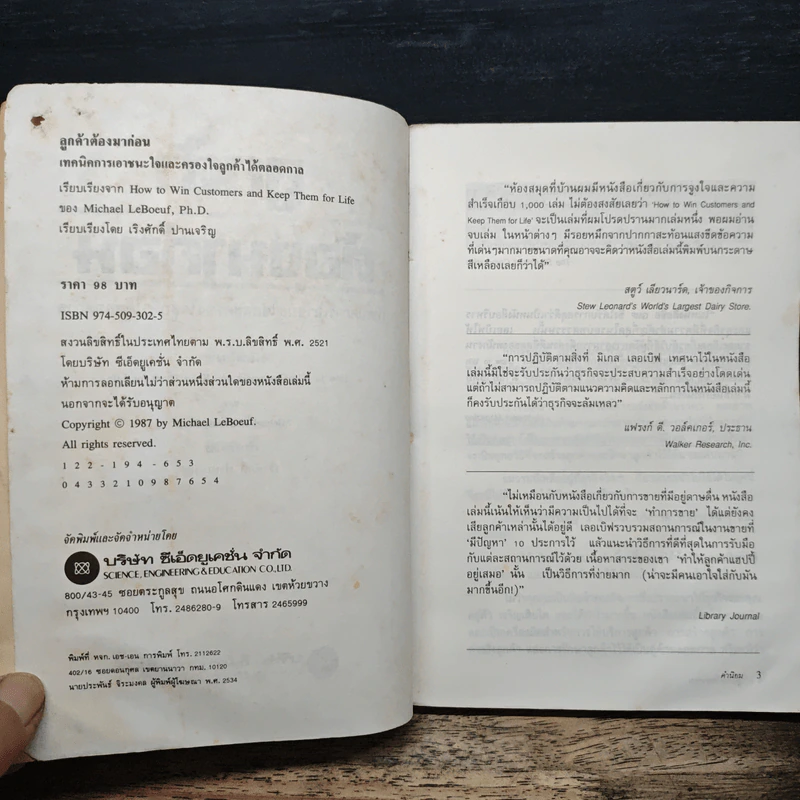 ลูกค้าต้องมาก่อน
เทคนิคการเอาชนะใจและครองใจลูกค้าได้ตลอดกาล
เรียบเรียงจาก How to Win Customers and Keep Them for Life
ของ Michael LeBoeuf, Ph.D.
เรียบเรียงโดย เริงศักดิ์ ปานเจริญ
ราคา 98 บาท
ISBN 974-509-302-5
สงวนลิขสิทธิ์ในประเทศไทยตาม พ.ร.บ.ลิขสิทธิ์ พ.ศ. 2521
โดยบริษัท ซีเอ็ดยูเคชั่น จำกัด
ห้ามการลอกเลียนไม่ว่าส่วนหนึ่งส่วนใดของหนังสือเล่มนี้
นอกจากจะได้รับอนุญาต
Copyright © 1987 by Michael LeBoeuf.
All rights reserved.
1 2 2 - 1 9 4 - 6 5 3
0 4 3 3 2 1 0 9 8 7 6 5 4
จัดพิมพ์และจัดจำหน่ายโดย
บริษัท ซีเอ็ดยูเคชั่น จำกัด
SCIENCE, ENGINEERING & EDUCATION CO., LTD.
800/43-45 ซอยตระกูลสุข ถนนอโศกดินแดง เขตห้วยขวาง
กรุงเทพฯ 10400 โทร. 2486280-9 โทรสาร 2465999
พิมพ์ที่ หจก. เอช-เอน การพิมพ์ โทร. 2112622
402/16 ซอยดอนกุศล เขตยานนาวา กทม. 10120
นายประพันธ์ จิระมงคล ผู้พิมพ์ผู้โฆษณา พ.ศ. 2534
“ห้องสมุดที่บ้านผมมีหนังสือเกี่ยวกับการจูงใจและความ
สำเร็จเกือบ 1,000 เล่ม ไม่ต้องสงสัยเลยว่า ‘How to Win Customers and
Keep Them for Life’ จะเป็นเล่มที่ผมโปรดปรานมากเล่มหนึ่ง พอผมอ่าน
จบเล่ม ในหน้าต่างๆ มีรอยหมึกจากปากกาสะท้อนแสงขีดข้อความ
ที่เด่นๆมากมายขนาดที่คุณอาจจะคิดว่าหนังสือเล่มนี้พิมพ์บนกระดาษ
สีเหลืองเลยก็ว่าได้”
สตูว์ เลียวนาร์ด, เจ้าของกิจการ
Stew Leonard's World's Largest Dairy Store.
“การปฏิบัติตามสิ่งที่ มิเกล เลอเบิฟ เทศนาไว้ในหนังสือ
เล่มนี้มิใช่จะรับประกันว่าธุรกิจจะประสบความสำเร็จอย่างโดดเด่น
แต่ถ้าไม่สามารถปฏิบัติตามแนวความคิดและหลักการในหนังสือเล่มนี้
ก็คงรับประกันได้ว่าธุรกิจจะล้มเหลว”
แฟรงก์ ดี. วอล์คเกอร์, ประธาน
Walker Research, Inc.
“ไม่เหมือนกับหนังสือเกี่ยวกับการขายที่มีอยู่ดาษดื่น หนังสือ
เล่มนี้เน้นให้เห็นว่ามีความเป็นไปได้ที่จะ ‘ทำการขาย’ ได้แต่ยังคง
เสียลูกค้าเหล่านั้นได้อยู่ดี เลอเบิฟรวบรวมสถานการณ์ในงานขายที่
‘มีปัญหา’ 10 ประการไว้ แล้วแนะนำวิธีการที่ดีที่สุดในการรับมือ
กับแต่ละสถานการณ์ไว้ด้วย เนื้อหาสาระของเขา ‘ทำให้ลูกค้าแฮปปี้
อยู่เสมอ’ นั้น เป็นวิธีการที่ง่ายมาก (น่าจะมีคนเอาใจใส่กับมัน
มากขึ้นอีก!)”
Library Journal
คำนิยม 3